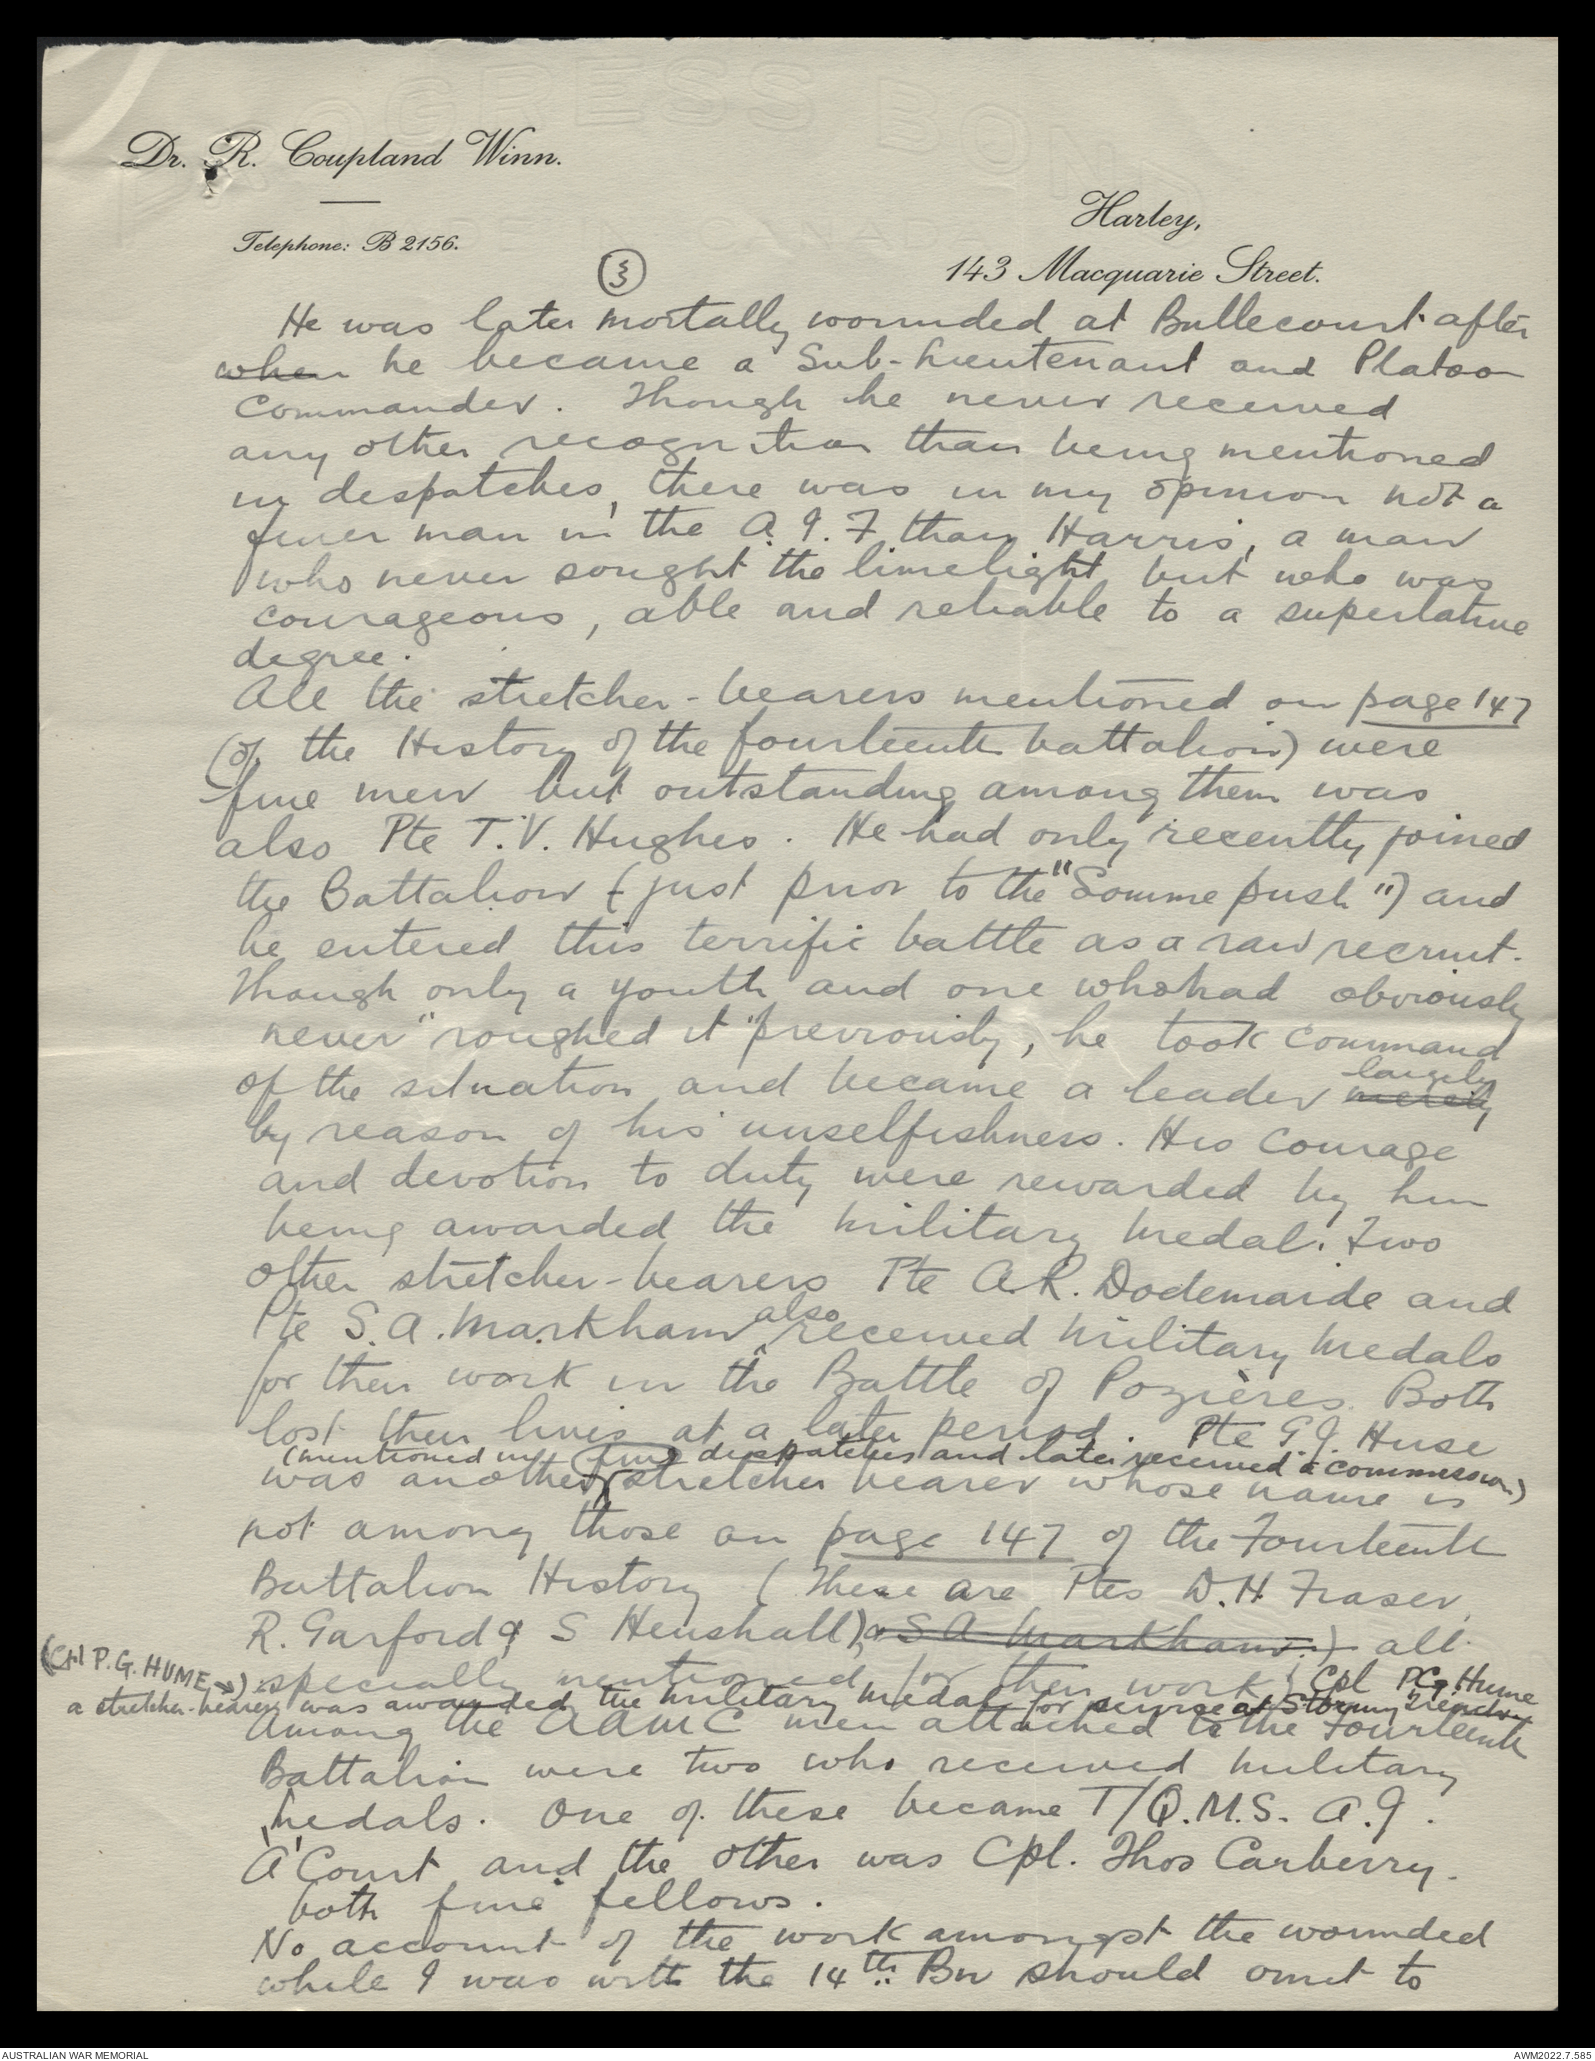 Dr. R. Coupland Winn.
Telephone: B 2156.
Harley,
143 Macquarie Street.
3
He was later mortally wounded at Bullecourt after
when he became a Sub-Lieutenant and Platoon
Commander. Though he never received
any other recognition than being mentioned
in despatches, there was in my opinion not a
finer man in the A.I.F than Harris, a man
who never sought the limelight but who was
courageous, able and reliable to a superlative
degree.
All the stretcher-bearers mentioned on page 147
(of the History of the fourteenth battalion) were
fine men but outstanding among them was
also Pte T.V. Hughes. He had only recently joined
the Battalion (just prior to the "Somme push") and
he entered this terrific battle as a raw recruit.
Though only a youth and one who had obviously
never "roughed it" previously, he took command
of the situation and became a leader merely largely
by reason of his unselfishness. His courage
and devotion to duty were rewarded by him
being awarded the Military Medal. Two
other stretcher-bearers Pte A.R. Dodemaide and
Pte S.A. Markham also received Military Medals
for their work in the Battle of Pozières. Both
lost their lives at a later period. Pte G.J. Huse
(mentioned in despatches and later received a commission)
was another fine stretcher bearer whose name is
not among those on page 147 of the Fourteenth
Battalion History (These are Ptes D.H. Fraser,
R. Garford & S Henshall), & S A Markham.) all
specially mentioned for their work; Cpl P.G. Hume
(Cpl P.G. HUME →)
a stretcher-bearer was awarded the Military Medal for service at Stormy Trench
Among the AAMC men attached to the Fourteenth
Battalion were two who received Military
Medals. One of these became T/Q.M.S. A.J.
A'Court and the other was Cpl. Thos Carberry.
both fine fellows.
No account of the work amongst the wounded
while I was with the 14th Bn should omit to
AUSTRALIAN WAR MEMORIAL
AWM2022.7.585